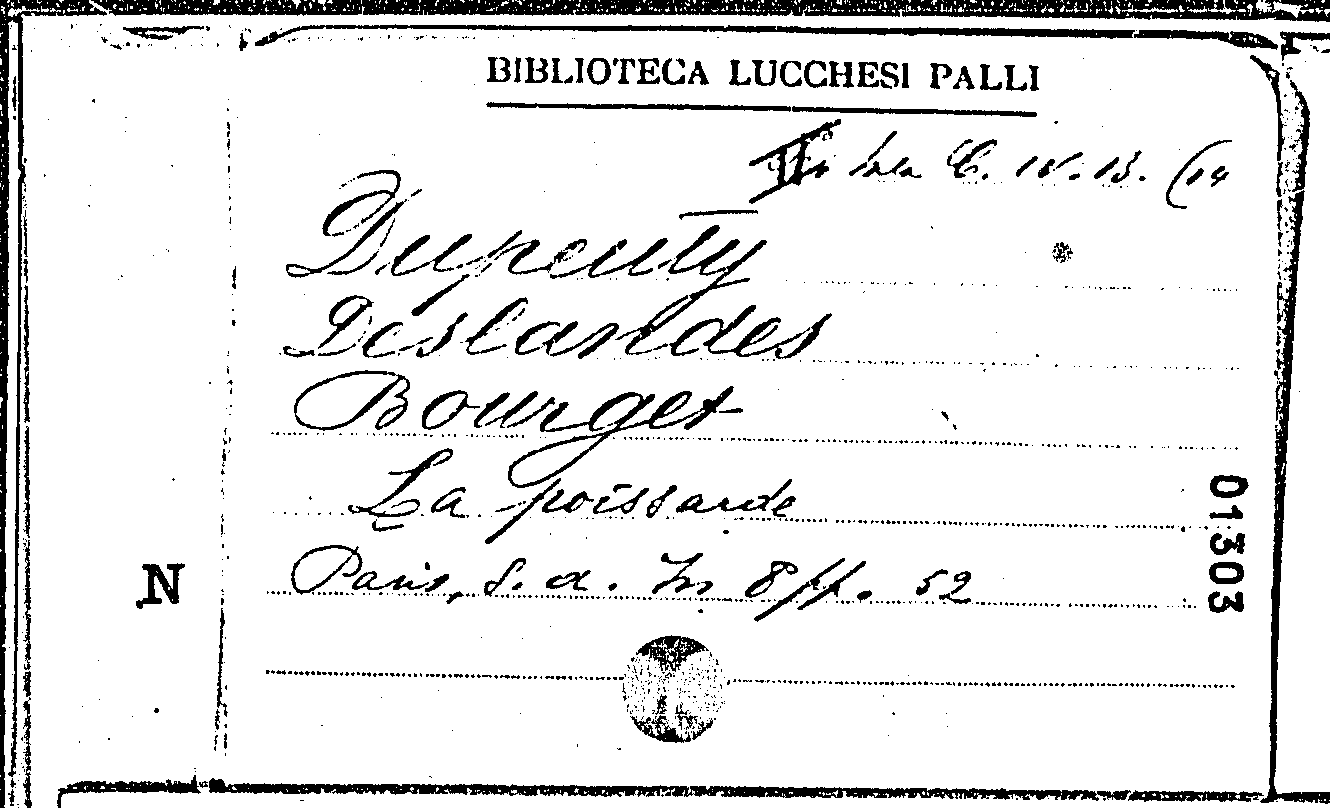 BIBLIOTECA LUCCHESI PALLI
C. IV. 13. (14
Dupeuty
Deslandes
Bourget
La poissarde
Paris, s. a. In 8 pp. 52
N
01303